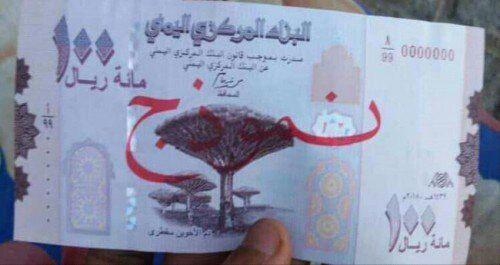 البنك المركزي اليمني
صدرت بموجب قانون البنك المركزي اليمني
عن البنك المركزي اليمني
المحافظ
١٠٠
مائة ريال
أ
99
0000000
أ
99
نموذج
دم الأخوين سقطرى
١٠٠
مائة ريال